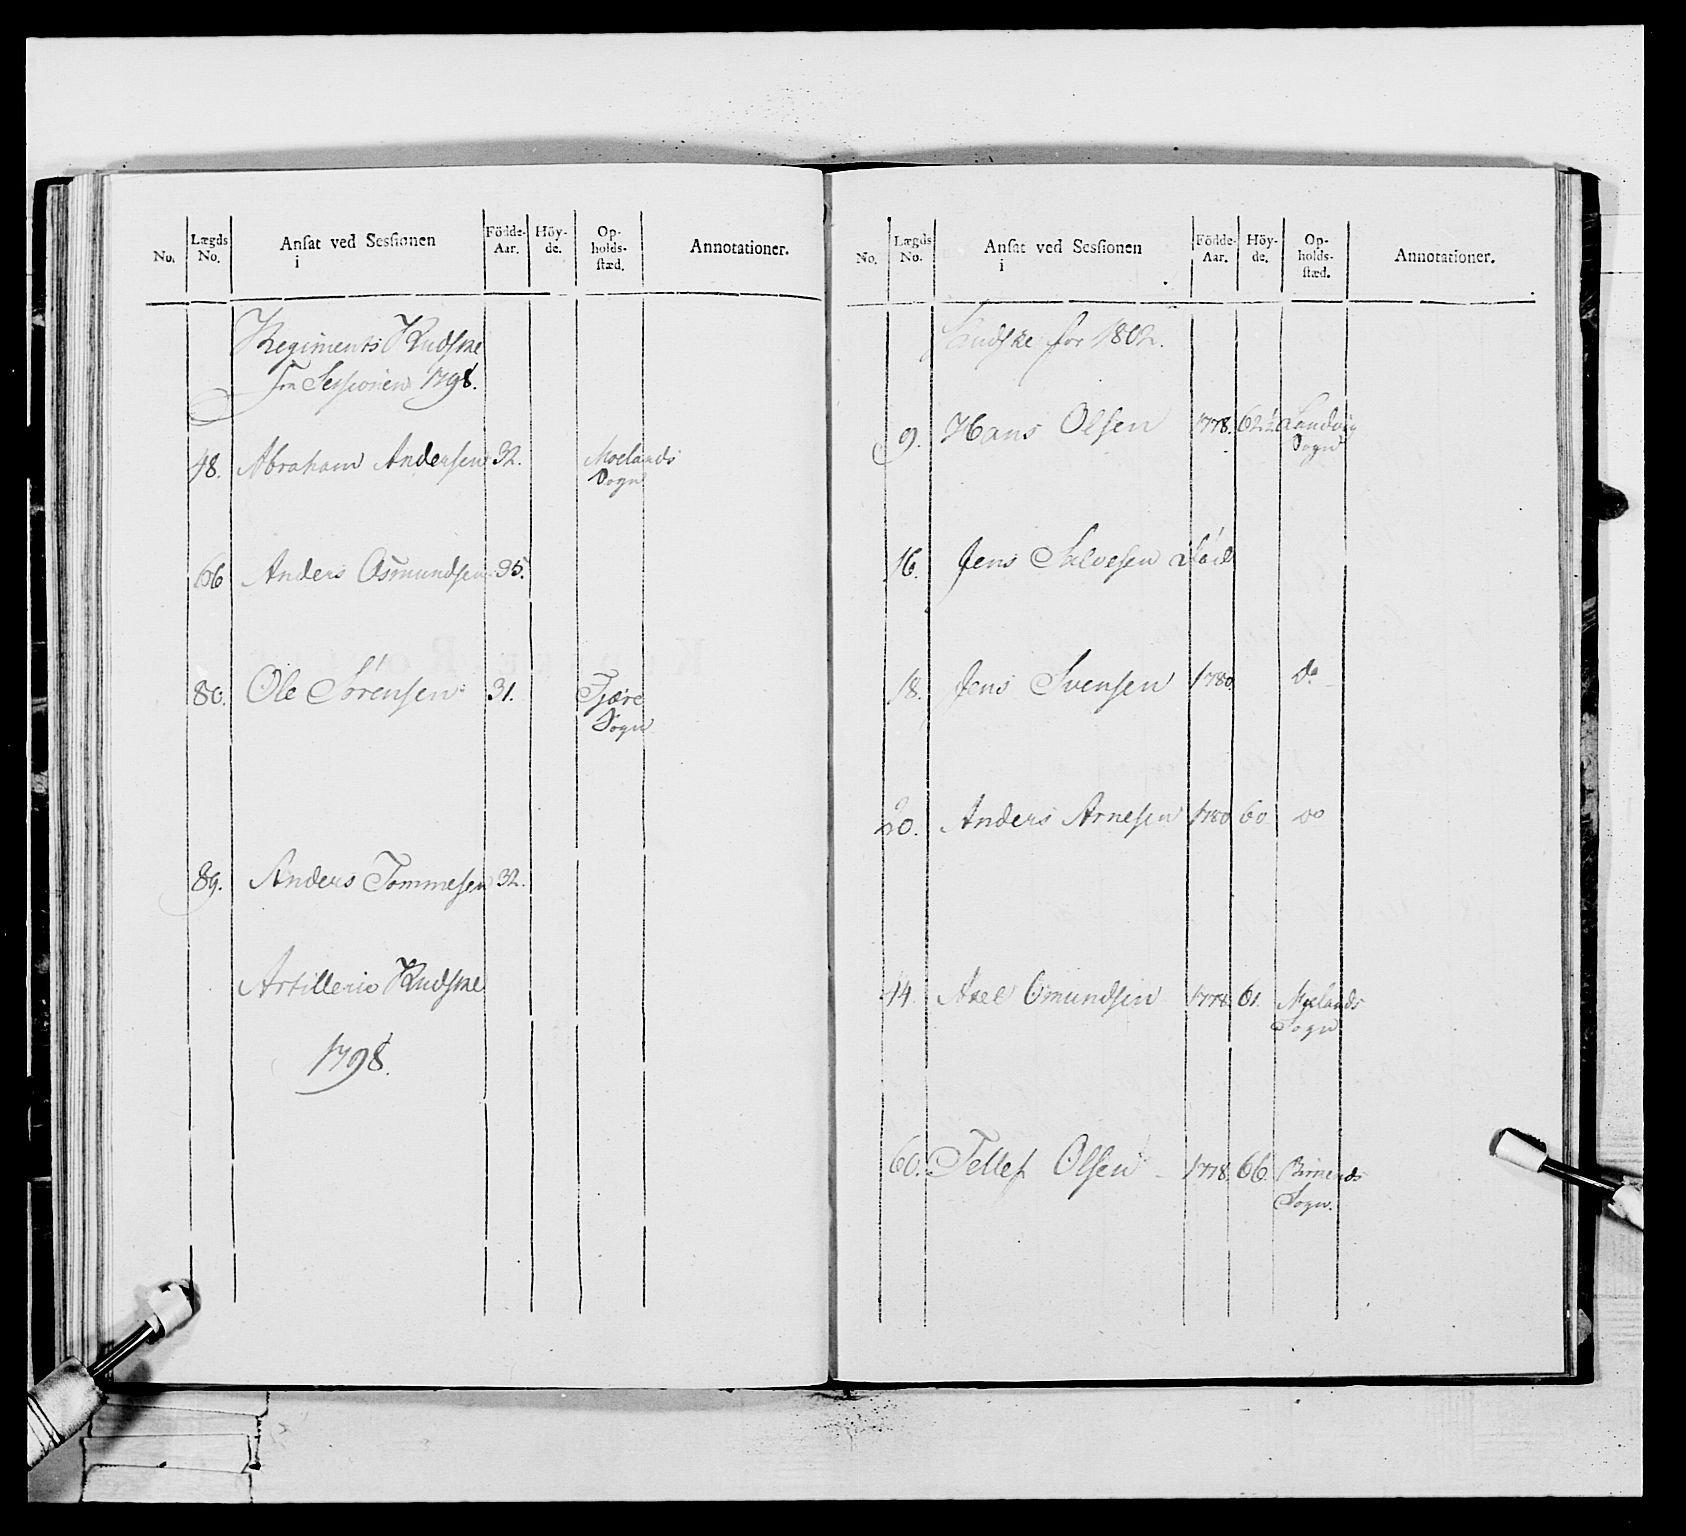 No. Lægds No. Ansat ved Sessionen i Födde-Aar. Höy-de. Op-holds-stæd. Annotationer.
Regiments Kudske
fra Sessionen 1798.
48. Abraham Andersen 32. Moelands
Sogn
66 Anders Osmundsen 35.
80. Ole Sørensen 31. Fjære
Sogn
89. Anders Tommesen 32.
Artillerie Kudske
1798.
No. Lægds No. Ansat ved Sessionen i Födde-Aar. Höy-de. Op-holds-stæd. Annotationer.
Kudske for 1802.
9. Hans Olsen 1778. 62½ Landvig
Sogn
16. Jens Salvesen
18. Jens Svensen 1780 do
20. Anders Arnesen 1780 60 do
44. Axel Omundsen 1778 61. Moelands
Sogn
60. Tellef Olsen 1778. 66. Birkenæs
Sogn.